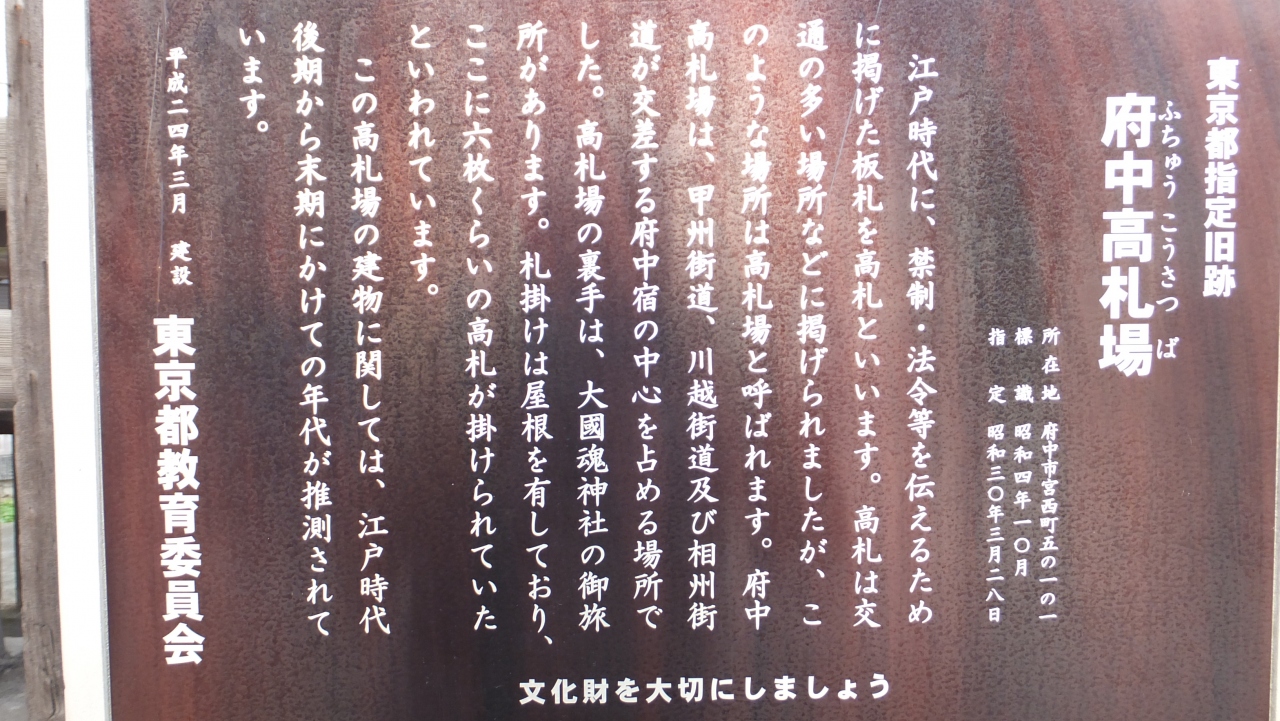 東京都指定旧跡
府中高札場
ふちゅう こうさつ ば
所在地 府中市宮西町五の一の一
標識 昭和四年一〇月
指定 昭和三〇年三月二八日
江戸時代に、禁制・法令等を伝えるため
に掲げた板札を高札といいます。高札は交
通の多い場所などに掲げられましたが、こ
のような場所は高札場と呼ばれます。府中
高札場は、甲州街道、川越街道及び相州街
道が交差する府中宿の中心を占める場所で
した。高札場の裏手は、大國魂神社の御旅
所があります。札掛けは屋根を有しており、
ここに六枚くらいの高札が掛けられていた
といわれています。
この高札場の建物に関しては、江戸時代
後期から末期にかけての年代が推測されて
います。
平成二四年三月 建設
東京都教育委員会
文化財を大切にしましょう